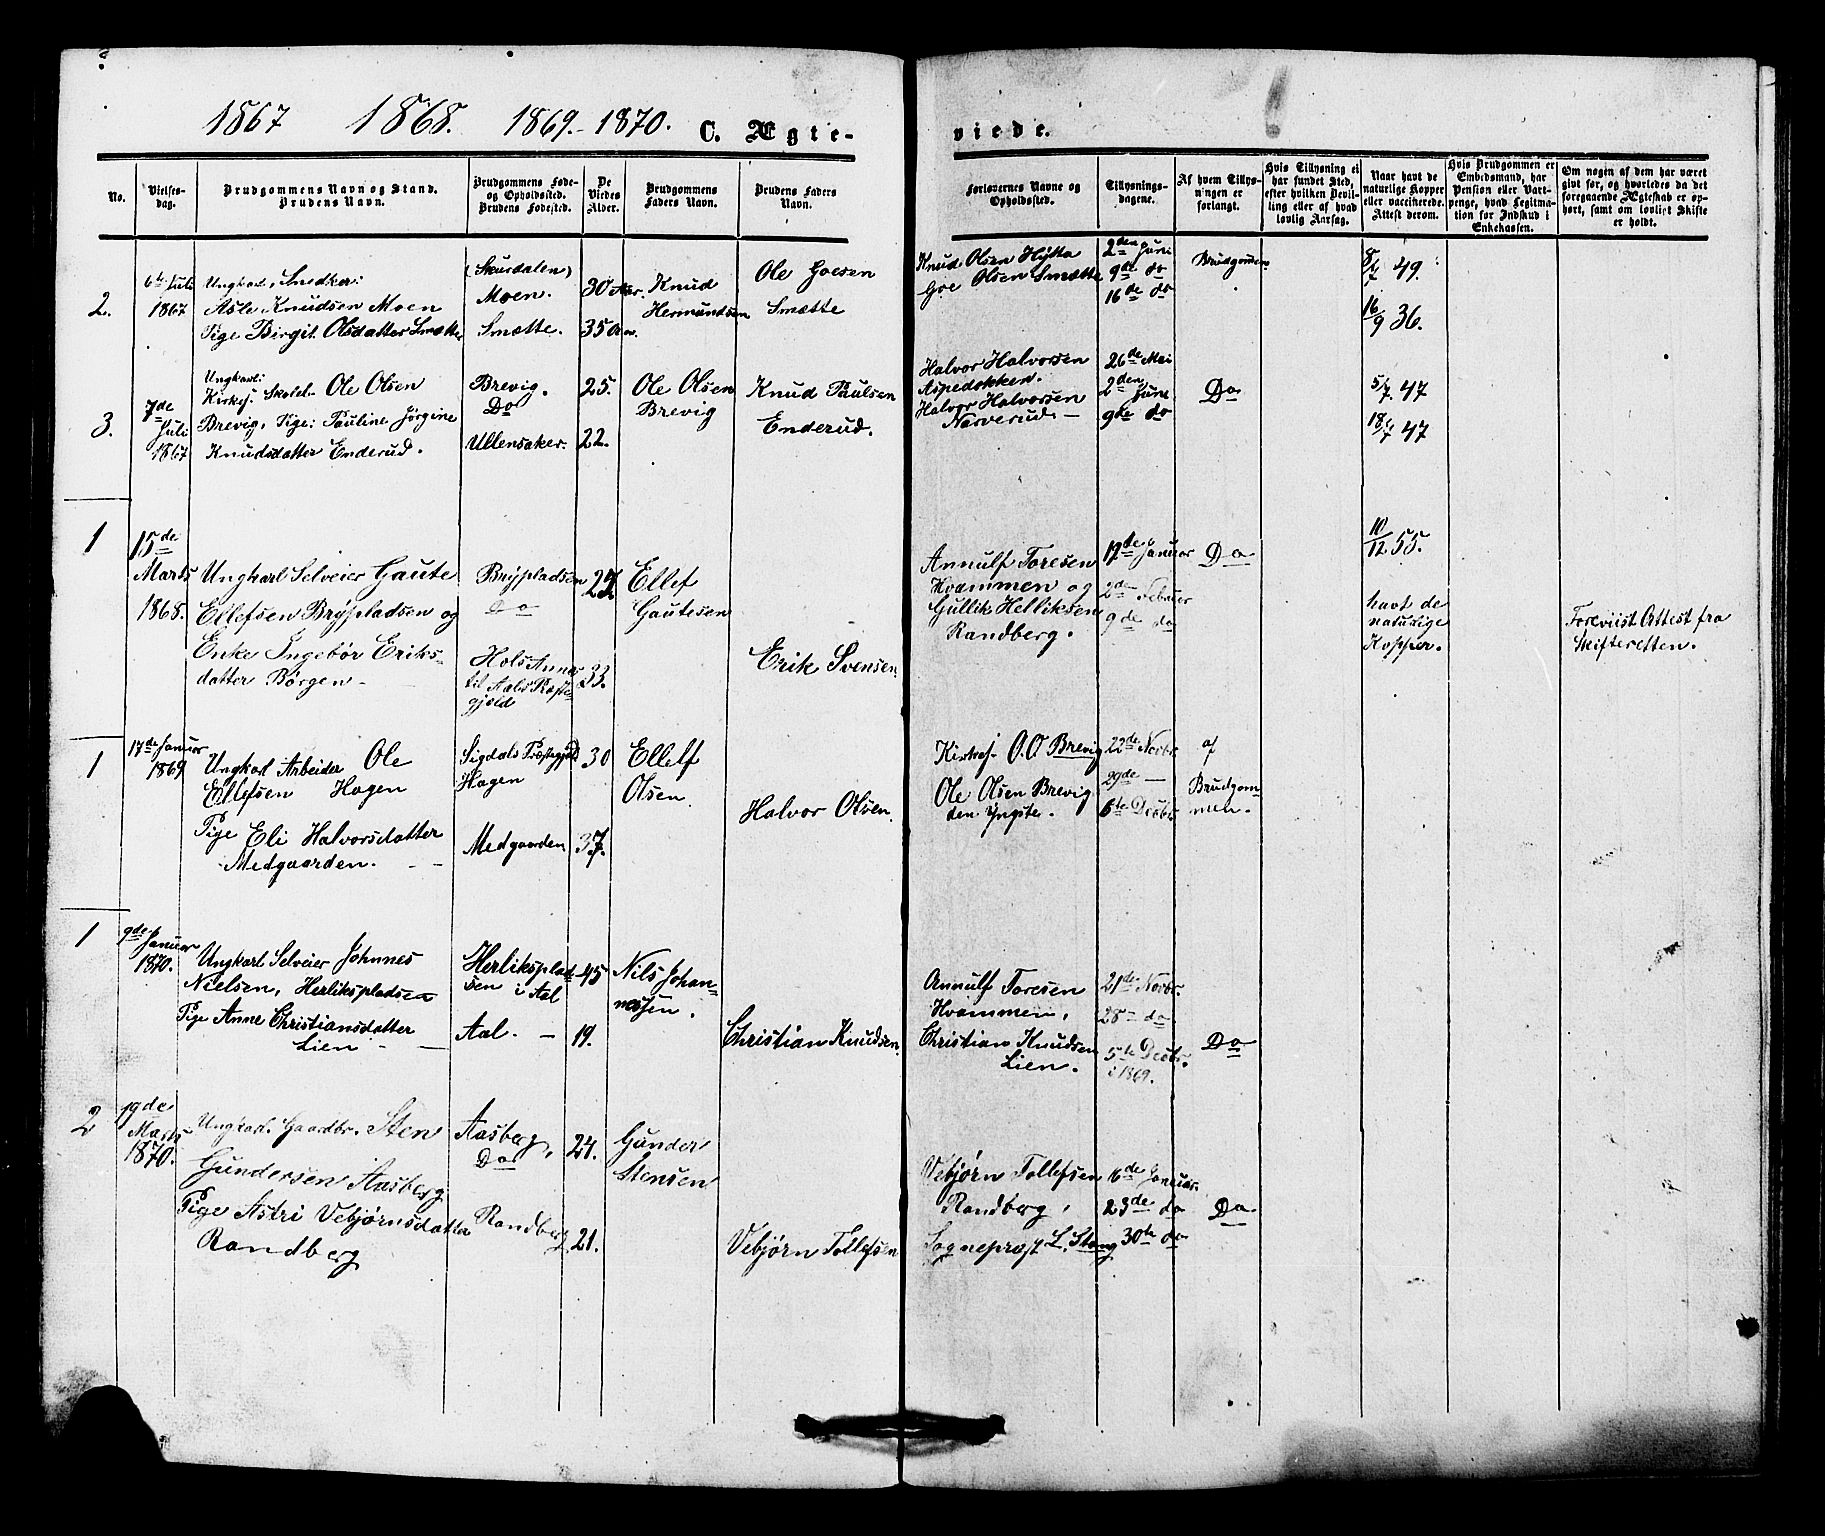 1867 1868. 1869.-1870. C. Ægte-
No.
Vielses-
dag.
Brudgommens Navn og Stand.
Brudens Navn.
Brudgommens Føde-
og Opholdssted.
Brudens Fødested.
De
Viedes
Alder.
Brudgommens
Faders Navn.
Brudens Faders
Navn.
2.
6te Juli
1867
Ungkarl, Snedker:
Asle Knudsen Moen
Pige Birgit Olsdatter Smætte
(Skurdalen)
Moen.
Smætte.
30 Aar.
35 Aar.
Knud
Hermundsen
Ole Goesen
Smætte
3.
7de
Juli
1867
Ungkarl:
Kirkes. Skolel. Ole Olsen
Brevig, Pige: Pauline Jørgine
Knudsdatter Enderud.
Brevig.
Do
Ullensaker.
25.
22.
Ole Olsen
Brevig
Knud Paulsen
Enderud.
1
15de
Marts
1868.
Ungkarl Selveier Gaute
Ellefsen Brÿpladsen og
Enke Ingebør Eriks-
datter Børgen -
Brÿpladsen
Do
Hols Annex
til Aals Præste-
gjeld
27.
33.
Ellef
Gautesen
Erik Svensen.
1
17de Januar
1869
Ungkarl Arbeider Ole
Ellefsen Hagen
Pige Eli Halvorsdatter
Medgaarden. -
Sigdals Præstegjeld
Hagen
Medgaarden
30
37.
Ellef
Olsen.
Halvor Olsen.
1
9de
Januar
1870.
Ungkarl Selveier Johnnes
Nielsen, Herlikspladsen
Pige Anne Christiansdatter
Lien -
Herliksplad-
sen i Aal
Aal. -
45
19.
Nils Johan-
nessen.
Christian Knudsen.
2
19de
Marts
1870.
Ungkarl Gaardbr. Sten
Gundersen Aasberg
Pige Astri Vebjørnsdatter
Randberg
Aasberg,
Do
Randberg
24.
21.
Gunder
Stensen
Vebjørn Tollefsen
viede.
Forlovernes Navne og
Opholdssted.
Tillysnings-
dagene.
Af hvem Tillys-
ningen er
forlangt.
Hvis Tillysning ei
har fundet Sted,
efter hvilken Bevil-
ling eller af hvad
lovlig Aarsag.
Naar havt de
naturlige Kopper
eller vaccinerede.
Attest derom.
Hvis Brudgommen er
Embedsmand, har
Pension eller Vart-
penge, hvad Legitima-
tion for Indskud i
Enkekassen.
Om nogen af dem har været
givt før, og hvorledes da det
foregaaende Ægteskab er op-
hørt, samt om lovligt Skifte
er holdt.
Knud Olsen Hÿtta
Goe Olsen Smætte
2den Juni
9de do
16de do
Brudgommen
8/7 49.
16/9 36.
Halvor Halvorsen
Aspedokken.
Halvor Halvorsen
Narverud. -
26de Mai
2den June
9de do
Do
5/7 47
18/7 47
Annulf Toresen
Hvammen og
Gullik Helliksen
Randberg.
12de Januar
2de Februar
9de do
Do
10/12 55.
havt de
naturige
Kopper.
Foreviist Attest fra
Skifteretten.
Kirkes. O. O Brevig
Ole Olsen Brevig
den Yngste.
22de Novbr.
29de -
6te Decbr
af
Brudgom-
men.
Annulf Toresen
Hvammen,
Christian Knudsen
Lien.
21de Novbr.
28- do
5te Decbr.
i 1869.
Do
Vebjørn Tollefsen
Randberg,
Sogneprest L. Stang
16de Januar.
23de do
30te do
Do